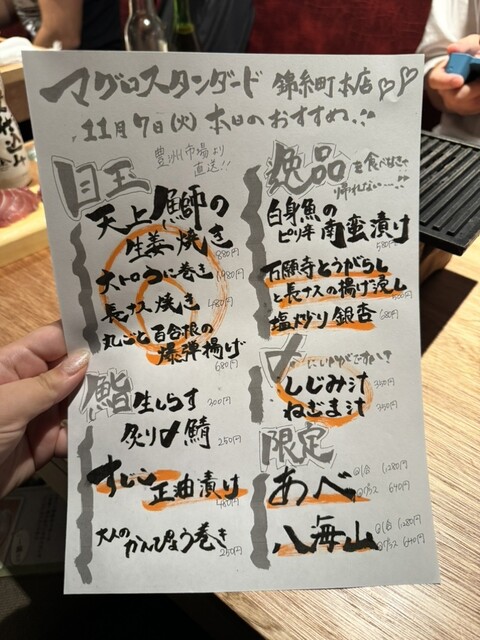 マグロスタンダード 錦糸町本店♡♡
11月7日(火)本日のおすすめ
豊洲市場より
直送!!
目玉
天上鰤の
生姜焼き
880円
大トロうに巻き
1,980円
長ナス焼き
480円
丸ごと百合根の
爆弾揚げ
680円
鮨
生しらす 300円
炙り〆鯖 250円
すじこ
正油漬け
480円
大人の
かんぴょう巻き
250円
逸品
を食べなきゃ
帰れない…
白身魚の
ピリ辛南蛮漬け
580円
万願寺とうがらし
と長ナスの揚げ浸し
塩炒り銀杏 680円
〆
しじみ汁 350円
ねぎま汁 350円
限定
あべ
1,280円
グラス 640円
八海山
1,280円
グラス 640円